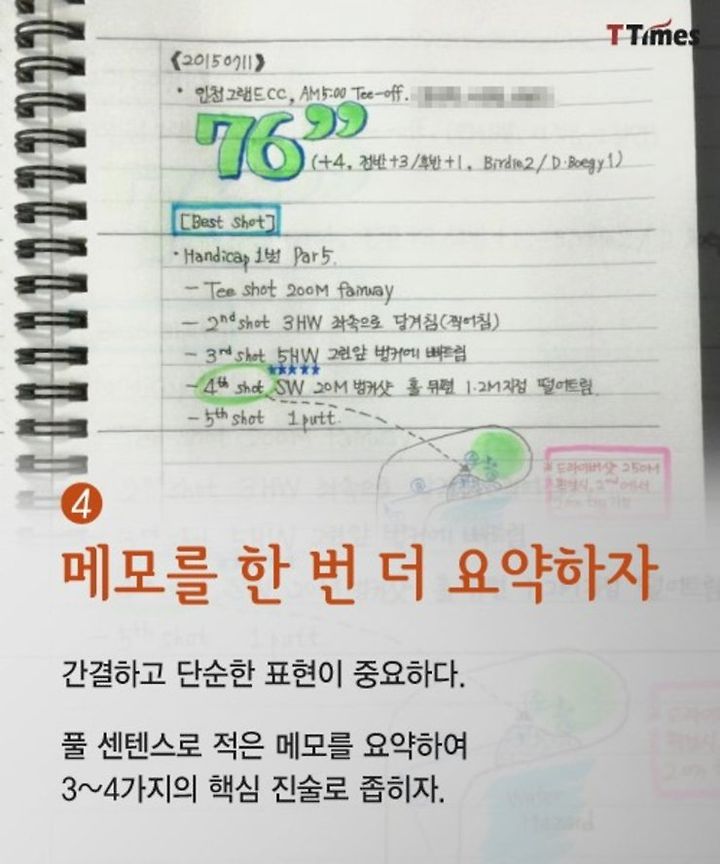 TTimes
《20150711》
• 인천그랜드CC, AM5:00 Tee-off.
76”
(+4, 전반+3/후반+1, Birdie2/D·Boegy1)
[Best shot]
• Handicap 1번 Par5.
- Tee shot 200M fairway
- 2nd shot 3HW 좌측으로 당겨짐(찍어침)
- 3rd shot 5HW 그린앞 벙커에 빠트림
★★★★★
- 4th shot SW 20M 벙커샷 홀 뒤편 1.2M지점 떨어트림.
- 5th shot 1putt.
※ 드라이버샷 250M
4
메모를 한 번 더 요약하자
간결하고 단순한 표현이 중요하다.
풀 센텐스로 적은 메모를 요약하여
3~4가지의 핵심 진술로 좁히자.